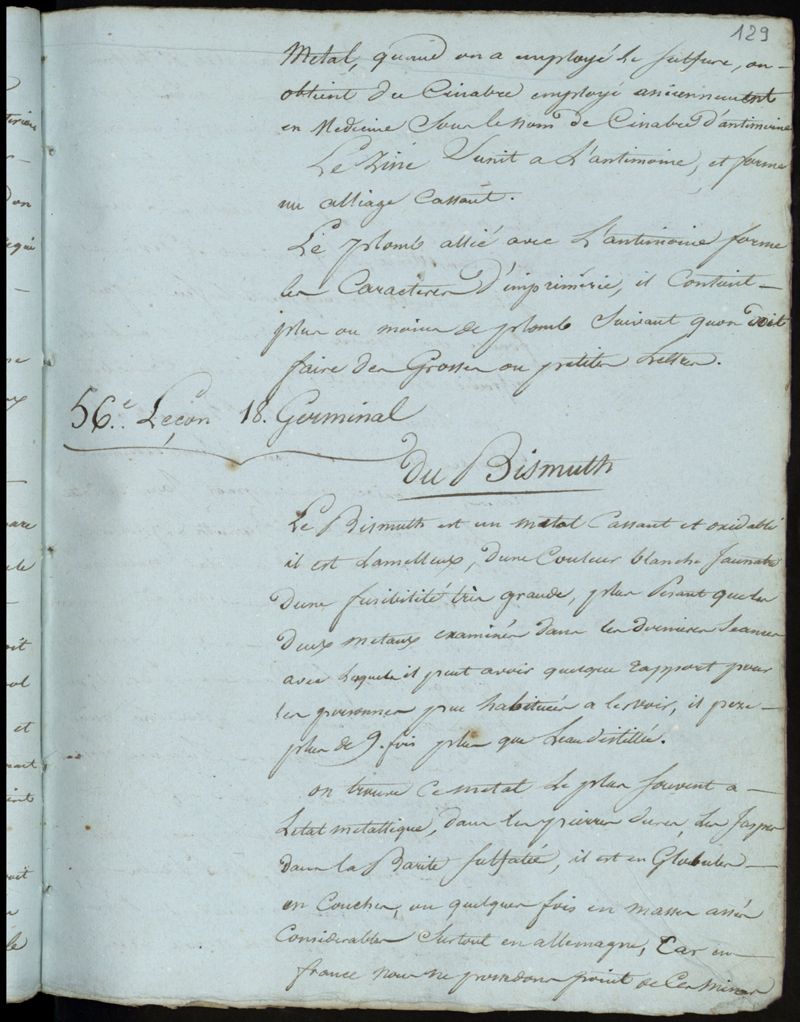 129
Metal, quand on a employé le sulfure, on
obtient du Cinabre employé anciennement
en Medecine sous le nom de Cinabre d'antimoine
Le Zinc s'unit a L'antimoine, et forme
un alliage Cassant.
Le plomb allié avec L'antimoine forme
les Caracteres d'imprimérie, il Contient
plus ou moins de plomb Suivant quon doit
faire des Grosses ou petites Lettres.
56.e Leçon 18. Germinal
du Bismuth
Le Bismuth est un metal Cassant et oxidable
il est Lamelleux, d'une Couleur blanche Jaunatre
d'une fusibilité très grande, plus Pesant que les
deux metaux examinés dans les dernieres Seances
avec Lesquels il peut avoir quelque rapport pour
les personnes peu habituées a les voir, il peze
plus de 9. fois plus que L'eau distillée.
on trouve Ce metal Le plus Souvent a
L'etat metallique, dans les pierres dures, Les Jaspes
dans la Barite Sulfatée, il est en Globules
en Couches, ou quelques fois en masses assés
Considerables Surtout en allemagne, Car en
france nous ne possedons point de Ces Mines